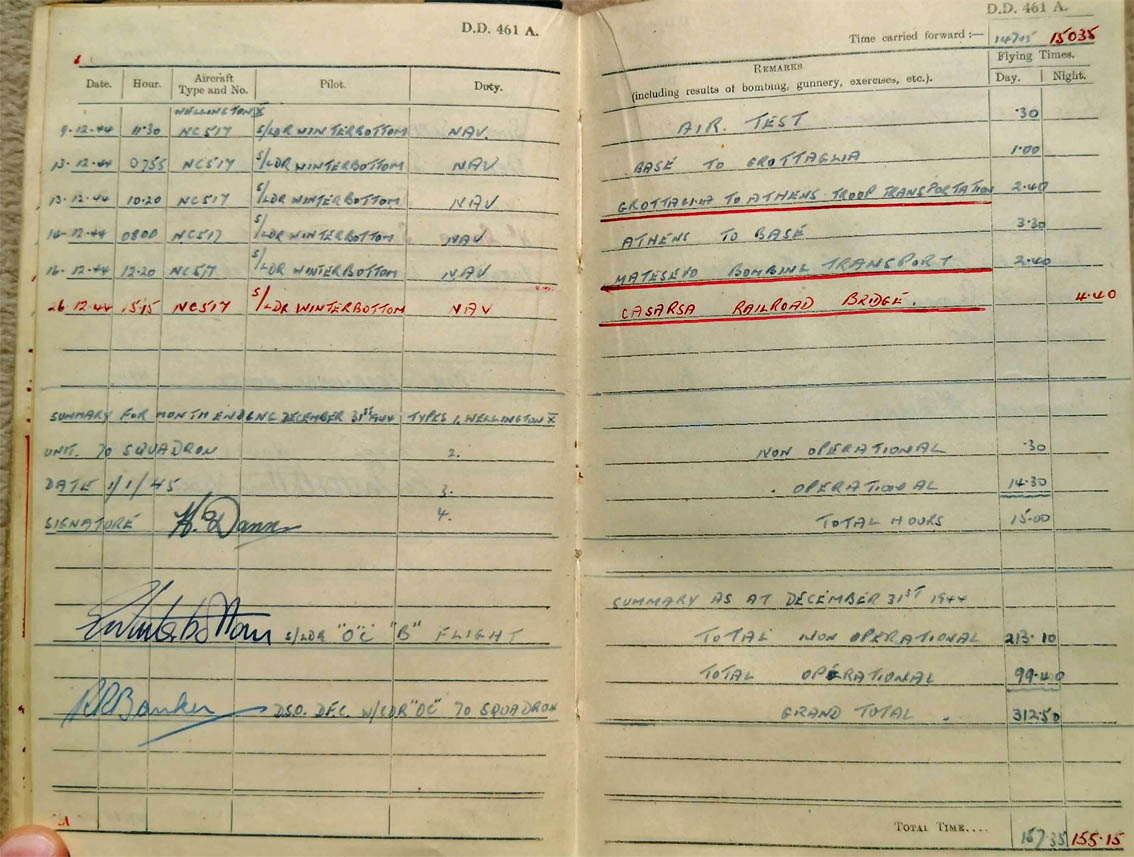 D.D. 461 A.
Date. Hour. Aircraft Type and No. Pilot. Duty.
WELLINGTON X
9-12-44 11:30 NC517 S/LDR WINTERBOTTOM NAV.
13-12-44 0755 NC517 S/LDR WINTERBOTTOM NAV
13-12-44 10.20 NC517 S/LDR WINTERBOTTOM NAV
14-12-44 0800 NC517 S/LDR WINTERBOTTOM NAV
16-12-44 12.20 NC517 S/LDR WINTERBOTTOM NAV
26-12-44 15.15 NC517 S/LDR WINTERBOTTOM NAV
SUMMARY FOR MONTH ENDENG DECEMBER 31ST 1944 TYPES 1. WELLINGTON X
UNIT. 70 SQUADRON 2.
DATE 1/1/45 3.
SIGNATURE K. Dann 4.
Winterbottom S/LDR "O'C" "B" FLIGHT
RRBanker D.S.O. D.F.C. W/CDR "OC" 70 SQUADRON
D.D. 461 A.
Time carried forward :— 15035
REMARKS
(including results of bombing, gunnery, exercises, etc.).
Flying Times.
Day. Night.
AIR. TEST .30
BASE TO GROTTAGLIA 1.00
GROTTAGLIA TO ATHENS TROOP TRANSPORTATION 2.40
ATHENS TO BASE 3.30
MATESEVO BOMBING TRANSPORT 2.40
CASARSA RAILROAD BRIDGE. 4.40
NON OPERATIONAL .30
OPERATIONAL 14.30
TOTAL HOURS 15.00
SUMMARY AS AT DECEMBER 31ST 1944
TOTAL NON OPERATIONAL 213.10
TOTAL OPERATIONAL 99.40
GRAND TOTAL. 312.50
TOTAL TIME.... 157.35 155.15